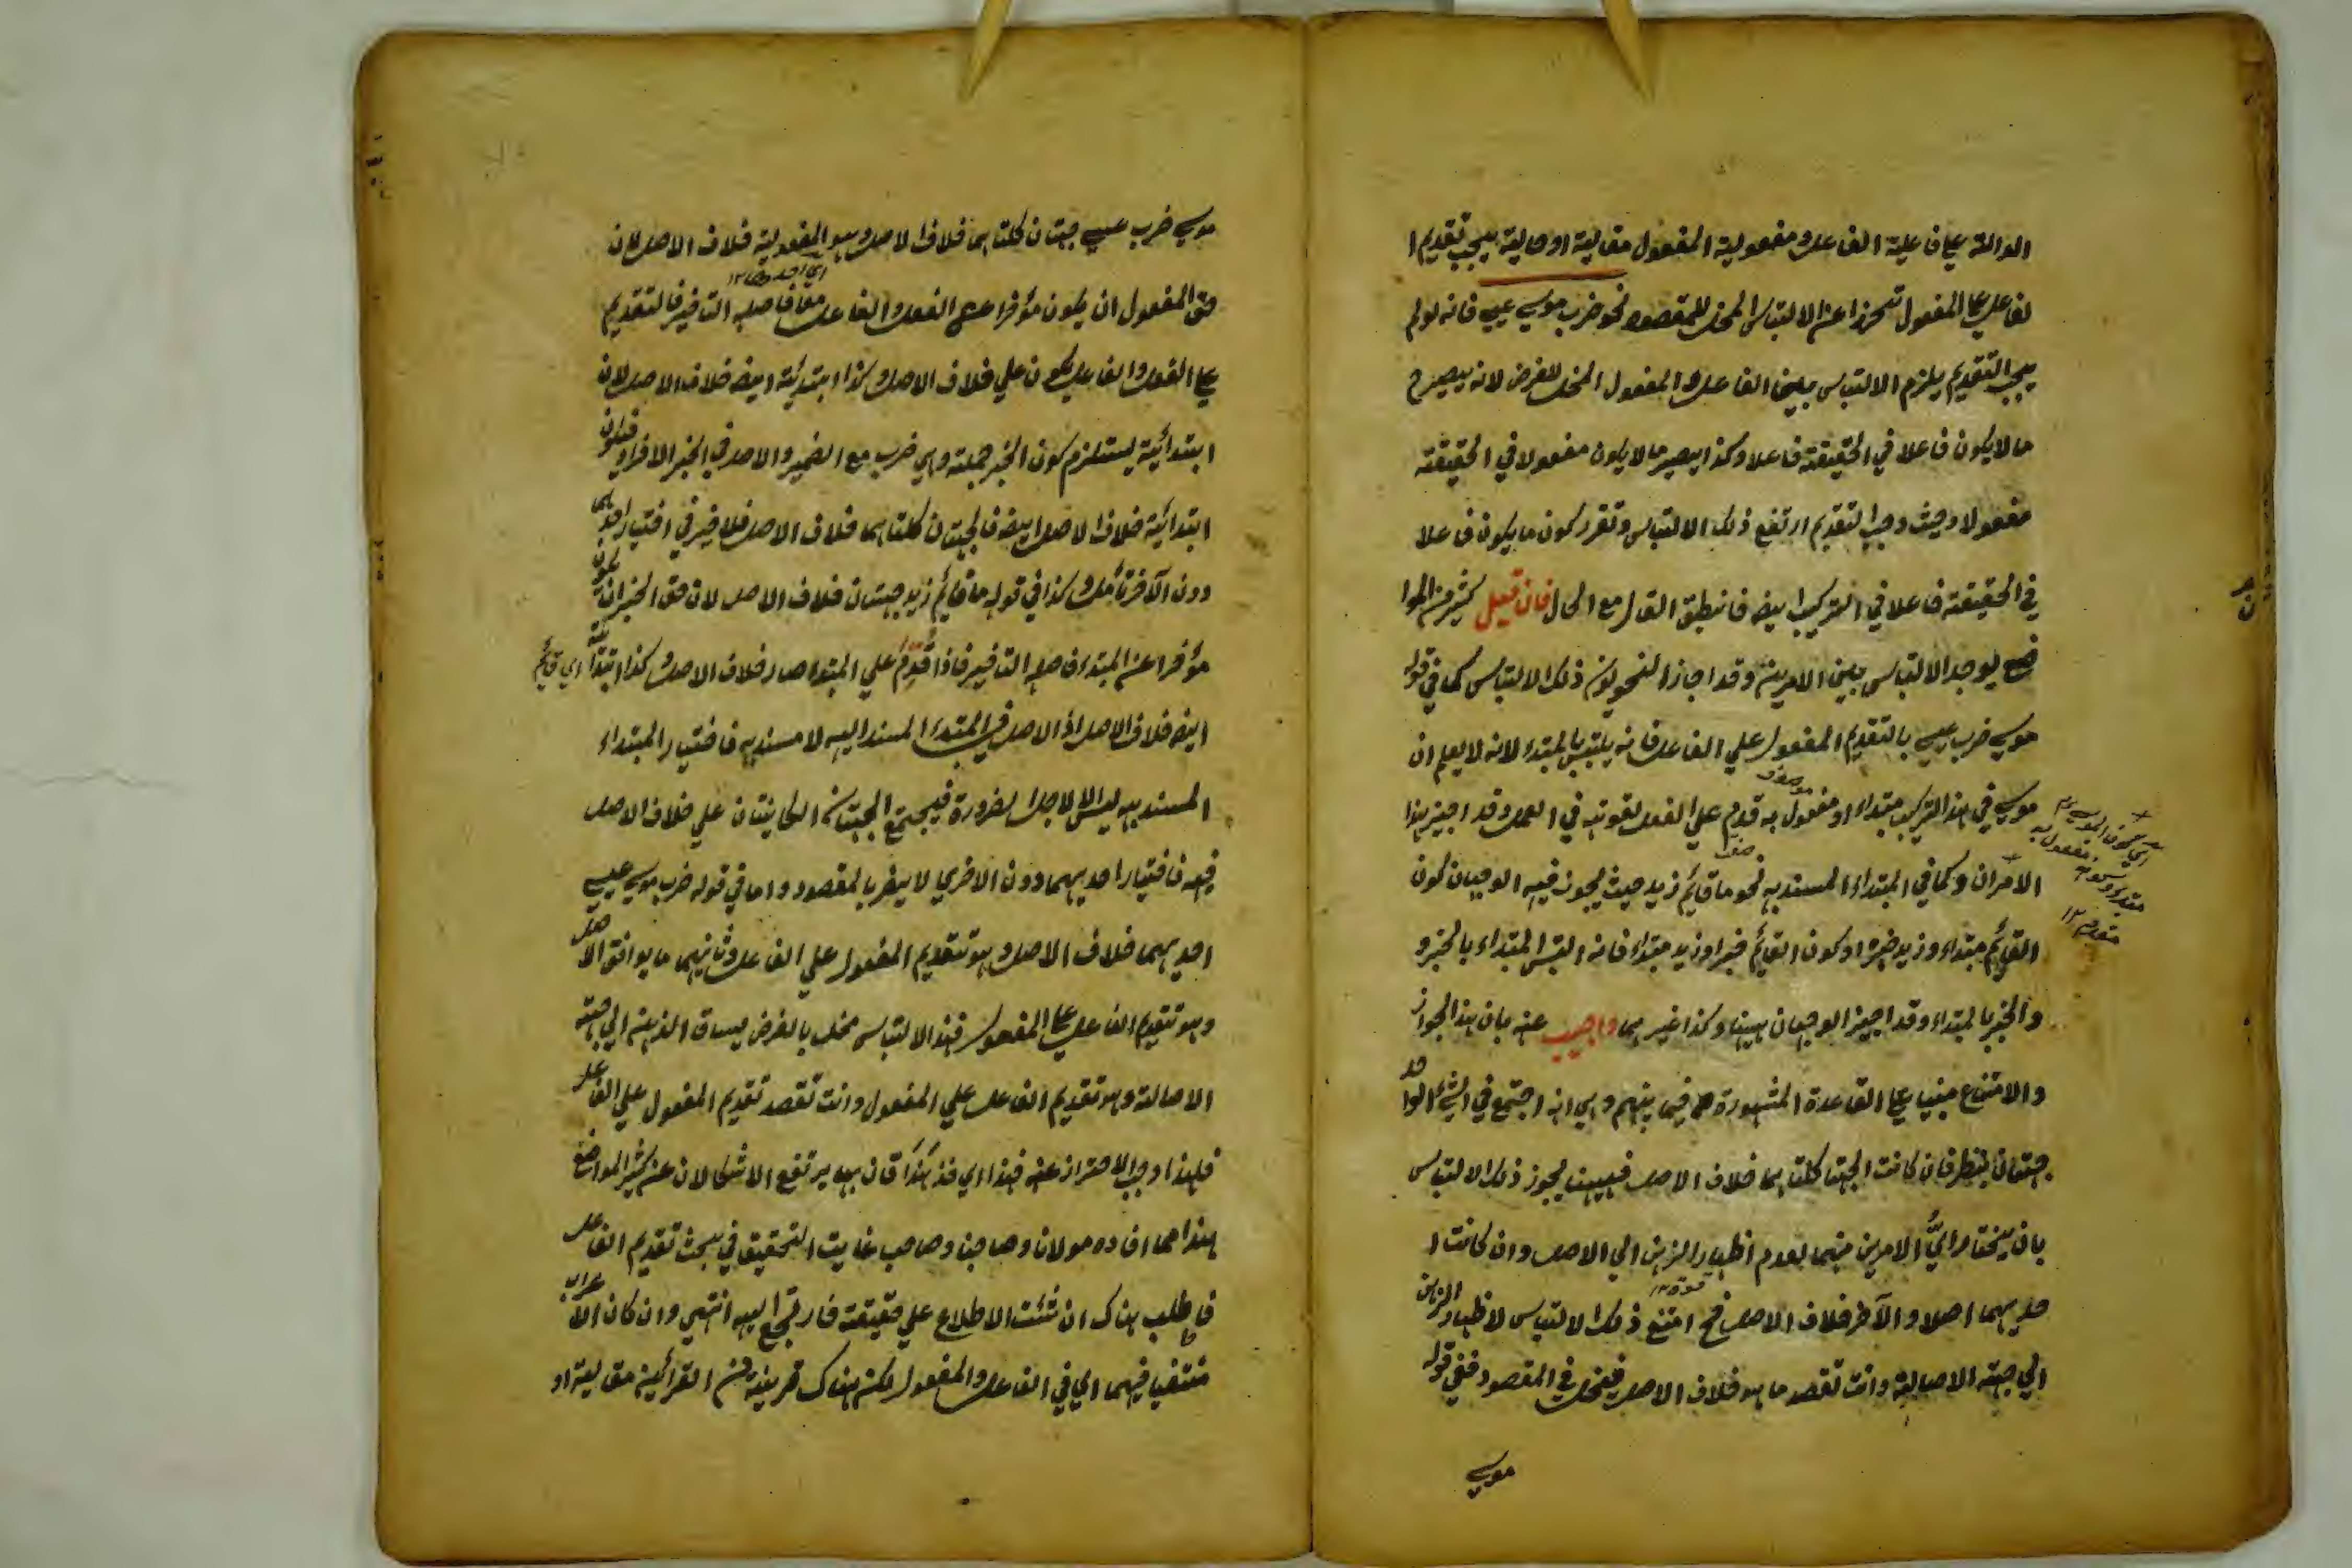 الدالة علي فاعلية الفاعل و مفعولية المفعول مقالية او حالية يجب تقديم ا
لفاعل علي المفعول تحرزا عن الالتباس المخل للمقصود نحو ضرب موسي عيسي فانه لو لم
يجب التقديم يلزم الالتباس بين الفاعل و المفعول المخل للغرض لانه يصير ح
ما لا يكون فاعلا في الحقيقة فاعلا و كذا يصير ما لا يكون مفعولا في الحقيقة
مفعولا و حيث وجب التقديم ارتفع ذلك الالتباس و تقرر كون ما يكون فاعلا
في الحقيقة فاعلا في التركيب ايضه فانطبق القال مع الحال فان قيل كثير من الموا
ضع يوجد الالتباس بين الامرين و قد اجاز النحويون ذلك الالتباس كما في قوله
موسي ضرب عيسي بالتقديم المفعول علي الفاعل فانه يلتبس بالمبتداء لانه لا يعلم ان
موسي في هذا التركيب مبتداء او مفعول به قدم علي الفعل لقوته في العمل و قد اجيز هذا
الامران و كما في المبتداء المسند به نحو ما قائم زيد حيث يجوز فيه الوجهان كون
القائم مبتداء و زيد خبره او كون القائم خبرا و زيد مبتداء فانه التبس المبتداء بالخبر و
و الخبر بالمبتداء و قد اجيز الوجهان ههنا و كذا غيرهما و اجيب عنه بان هذا الجواز
و الامتناع مبنيا علي القاعدة المشهورة فيما بينهم و هي انه اجتمع في الشئ الواحد
جهتان ينظر فان كانت الجهتا كلتاهما خلاف الاصل فحينئذ يجوز ذلك الالتباس
بان يختار ايُّ الامرين منهما لعدم اظهار الذهن الي الاصل و ان كانت ا
حديهما اصلا و الآخر خلاف الاصل فح امتنع ذلك الالتباس لاظهار الذهن
الي جهة الاصالة و انت تقصد ما هو خلاف الاصل فيخل في المقصود ففي قوله
موسي
موسي ضرب عيسي جهتان كلتاهما خلاف الاصل و هو المفعولية خلاف الاصل لان
حق المفعول ان يكون مؤخرا عن الفعل و الفاعل معا فاصله التاخير فالتقديم
علي الفعل و الفاعل يكون علي خلاف الاصل و كذا ابتدئية ايضه خلاف الاصل لان
ابتدائية يستلزم كون الخبر جملة و هي ضرب مع الضمير و الاصل في الخبر الافراد فيكون
ابتدائية خلاف الاصل ايضه فالجهتان كلتاهما خلاف الاصل فلا ضير في اختيار احديهما
دون الآخر تأمل و كذا في قوله ما قائم زيد جهتان خلاف الاصل لان حق الخبر ان يكون
مؤخرا عن المبتداء فاصله التاخير فاذا قُدِّم علي المبتداء صار خلاف الاصل و كذا ابتدائية اي قائم
ايضه خلاف الاصل اذ الاصل في المبتداء المسند اليه لا مسند به فاختيار المبتداء
المسند به ليس الا لاجل الضرورة فيجتمع الجهتان الكائنتان علي خلاف الاصل
فيه فاختيار احديهما دون الاخري لا يضر بالمقصود و اما في قوله ضرب موسي عيسي
احديهما خلاف الاصل و هو تقديم المفعول علي الفاعل و ثانيهما ما يوافق الاصل
و هو تقديم الفاعل علي المفعول فهذا الالتباس مخل بالغرض يساق الذهن الي جهة
الاصالة و هو تقديم الفاعل علي المفعول و انت تقصد تقديم المفعول علي الفاعل
فلهذا وجب الاحتراز عنه فهذا اي خذ هكذا فان به يرتفع الاشكالان عن كثير المواضع
هذا مما افاده مولانا و صاحبنا و صاحب غايت التحقيق في بحث تقديم الفاعل
فاطلب هناك ان شئت الاطلاع علي حقيقة فارجع اليه انتهي و ان كان الاعراب
منتفيا فيهما اي في الفاعل و المفعول لكن هناك قرينة من القرائين مقالية او